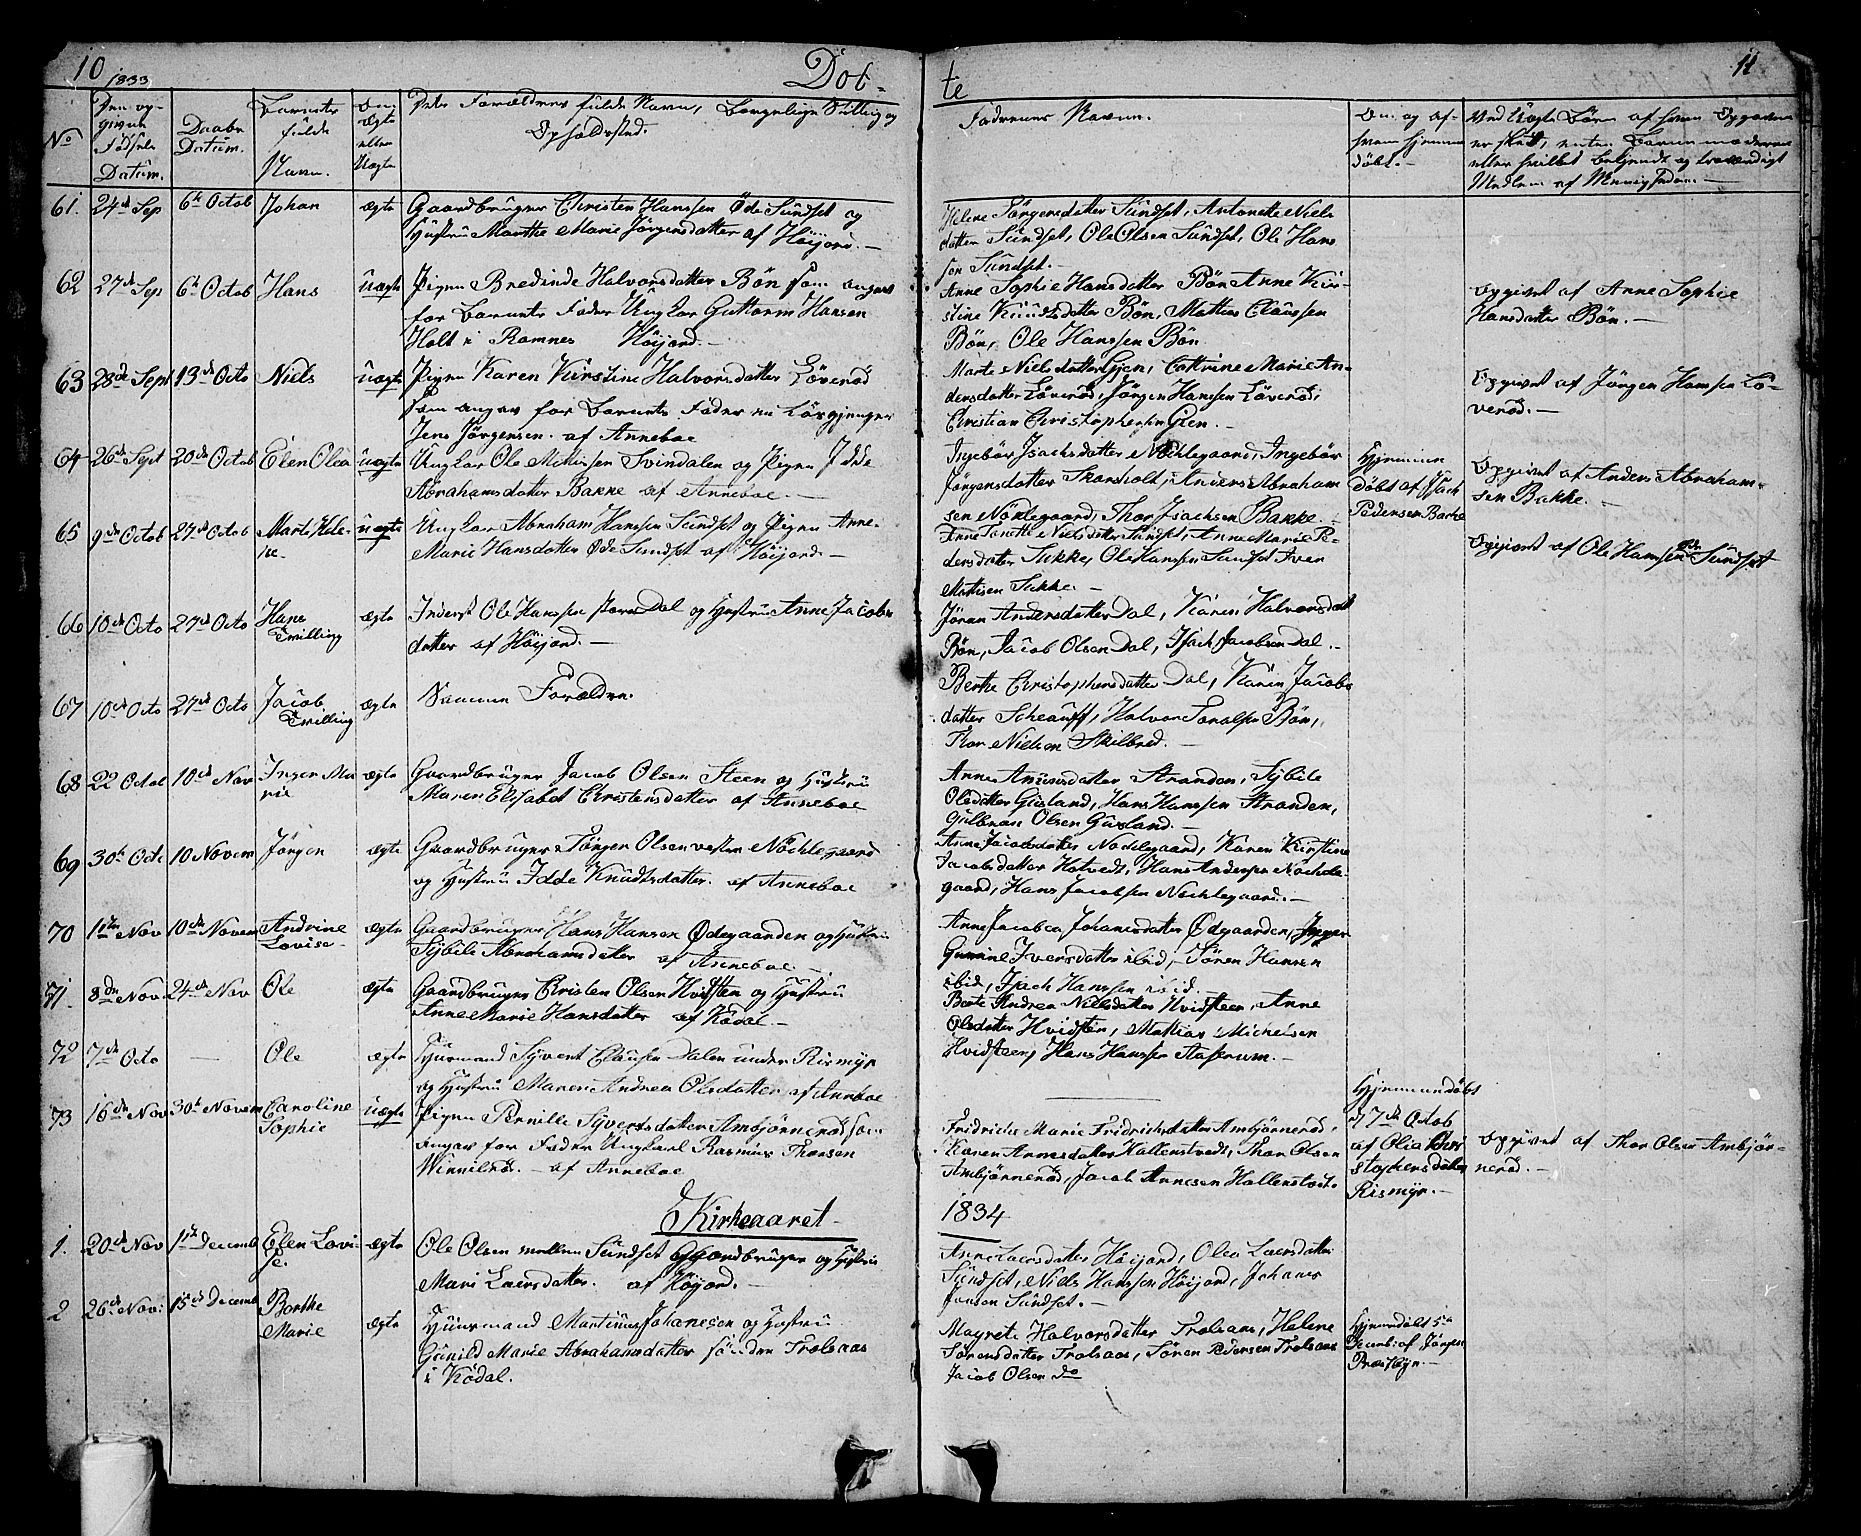 10 1833 Døb-
te 11
No
Den op-
given
Fødsels
Datum.
Daabs
Datum.
Barnets
fulde
Navn.
Om
ægte
eller
Uægte
Dets Forældres fulde Navn, Borgerlige Stilling og
Opholdssted.
Faddernes Navne.
Om og af
hvem hjemme
døbt.
Ved Uægte Børn af hvem Opgaven
er skeet, enten Barnemoderen
eller hvilket bekjendt og troværdigt
Medlem af Menigheden.
61. 24de Sep 6te Octob Johan ægte Gaardbruger Christen Hanssen Øde Sundset og
Hustru Marthe Marie Jørgensdatter af Høijord.
Helene Jørgensdatter Sundset, Antonette Niels
datter Sundset, Ole Olsen Sundset, Ole Hans
sen Sundset.
62 27de Sep 6te Octob Hans uægte Pigen Bredinde Halvorsdatter Bøn som angav
for Barnets Fader Ungkar Guttorm Hansen
Holt i Ramnes Høijord.
Anne Sophie Hansdatter Bøn Anne Kir-
stine Knudsdatter Bøn, Mathias Claussen
Bøn, Ole Hanssen Bøn
Opgivet af Anne Sophie
Hansdatter Bøn.
63 28de Sept 13de Octo Niels uægte Pigen Karen Kirstine Halvorsdatter Løverød
som angav for Barnets Fader en Løsgjenger
Jens Jørgensen. af Anneboe
Marte Nielsdatter Gjen, Cattrine Marie An-
dersdatter Løverød, Jørgen Hanssen Løverød,
Christian Christophersen Gjen.
Opgivet af Jørgen Hanssen Lø-
verød.
64 26de Sept 20de Octob Elen Olea uægte Ungkar Ole Mathisen Svindalen og Pigen Idde
Abrahamsdatter Bakke af Anneboe.
Ingebør Isachsdatter Nøchlegaard, Ingebør
Jørgensdatter Skarsholt, Anders Abraham
sen Nøklegaard, Thor Isachsen Bakke
Hjemme
døbt af Isach
Pedersen Bakke
Opgivet af Anders Abraham-
sen Bakke.
65 9de Octob 27de Octob Marte Hele-
ne uægte Ungkar Abraham Hanssen Sundset og Pigen Anne
Marie Hansdatter Øde Sundset af Høijord.
Anne Dorothe Nielsdatter Sundset, Anne Marie Pe-
dersdatter Sukke, Ole Hanssen Sundset Iver
Mathisen Sukke.
Opgivet af Ole Hanssen Øde Sundset
66 10de Octo 27de Octo Hans
Tvilling ægte Inderst Ole Hanssen Dal og Hustru Anne Jacobs
datter af Høijord.
Jøran Andersdatter Dal, Karen Halvorsdatt
Bøn, Jacob Olsen Dal, Isach Jacobsen Dal.
67 10de Octo 27de Octo Jacob
Tvilling ægte Samme Forældre.
Berthe Christophersdatter Dal, Karen Jacobs
datter Scheauff, Halvor Bøn,
Thor Nielsen Skilbred.
68 22 Octob 10de Nov Inger Ma
rie ægte Gaardbruger Jacob Olsen Steen og Hustru
Maren Elisabet Christensdatter af Anneboe
Anne Amundsdatter Stranden, Sybile
Olsdatter Gusland, Hans Hanssen Stranden,
Gulbran Olsen Gusland.
69 30te Octo 10 Novem Jørgen ægte Gaardbruger Jørgen Olsen vestre Nøchlegaard
og Hustru Idde Knudtsdatter. af Anneboe
Anne Jacobsdatter Nøchlegaard, Karen Kirstine
Jacobsdatter Hotvedt, Hans Andersen Nøchle
gaard, Hans Jacobsen Nøchlegaard.
70 1ste Nov 10de Novem Andrine
Lovise ægte Gaardbruger Hans Hansen Ødegaarden og Hustru
Sybile Abrahamsdatter af Anneboe.
Anne Jacobea Johanesdatter Ødegaarden, Inger
Gurine Iversdatter ibid, Søren Hansen
ibid, Isach Hanssen ibid.
71. 8de Nov 24de Nov Ole ægte Gaardbruger Christen Olsen Hvidsteen og Hustru
Anne Marie Hansdatter af Kodal
Berte Andrea Nilsdatter Hvidsteen, Anne
Olsdatter Hvidsteen, Mathias Michelsen
Hvidsteen, Hans Hanssen Aaserum.
72 7de Octo — Ole ægte Huusmand Syvert Claussen Dalen under Rismyr
og Hustru Maren Andrea Olsdatter af Anneboe
Hjemmedøbt
d 7de Octob
af Olea Chri
stophersdatter
Rismyr.
73 16de Nov 30te Novem Caroline
Sophie uægte Pigen Pernille Syvertsdatter Ambjørnerød som
angav for Fader Ungkarl Rasmus Thorsen
Winnilrød. af Anneboe
Fridricke Marie Fridrichsdatter Ambjørnerød,
Karen Annesdatter Hallenstvedt, Thor Olsen
Ambjørnerød, Jacob Annesen Hallenstvedt.
Opgivet af Thor Olsen Ambjør-
nerød.
Kirkeaaret 1834
1. 20de Nov 1ste Decemb Elen Lovi-
se. ægte Ole Olsen mellem Sundset Gaardbruger og Hustru
Mari Larsdatter. af Høijord.
Anne Larsdatter Høijord, Olea Larsdatter
Sundset, Niels Hanssen Høijord, Johanes
Jonsen Sundset.
2 26de Nov: 15de Decemb Berthe
Marie ægte Huusmand Martinus Johanesen og Hustru
Gunild Marie Abrahamsdatter søndre Trolsaas
i Kodal.
Magrete Halvorsdatter Trolsaas, Helene
Sørensdatter Trolsaas, Søren Pedersen Trolsaas
Jacob Olsen do
Hjemmedøbt 5te
Decemb: af Jørgen
Præstbyn.